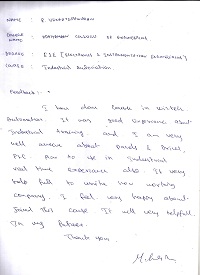 NAME :
COLLEGE NAME : COLLEGE OF ENGINEERING
DEGREE : E&I (Electronics & Instrumentation Engineering)
COURSE : Industrial Automation
Feedback :-
I have done course in
Automation. It was good experience about
Industrial training and I am very
well about panels & Drives,
PLC. use in Industrial
real time experience also. It very
help full to working
company. I feel very happy about
this course It will very helpfull
In my future.
Thank you